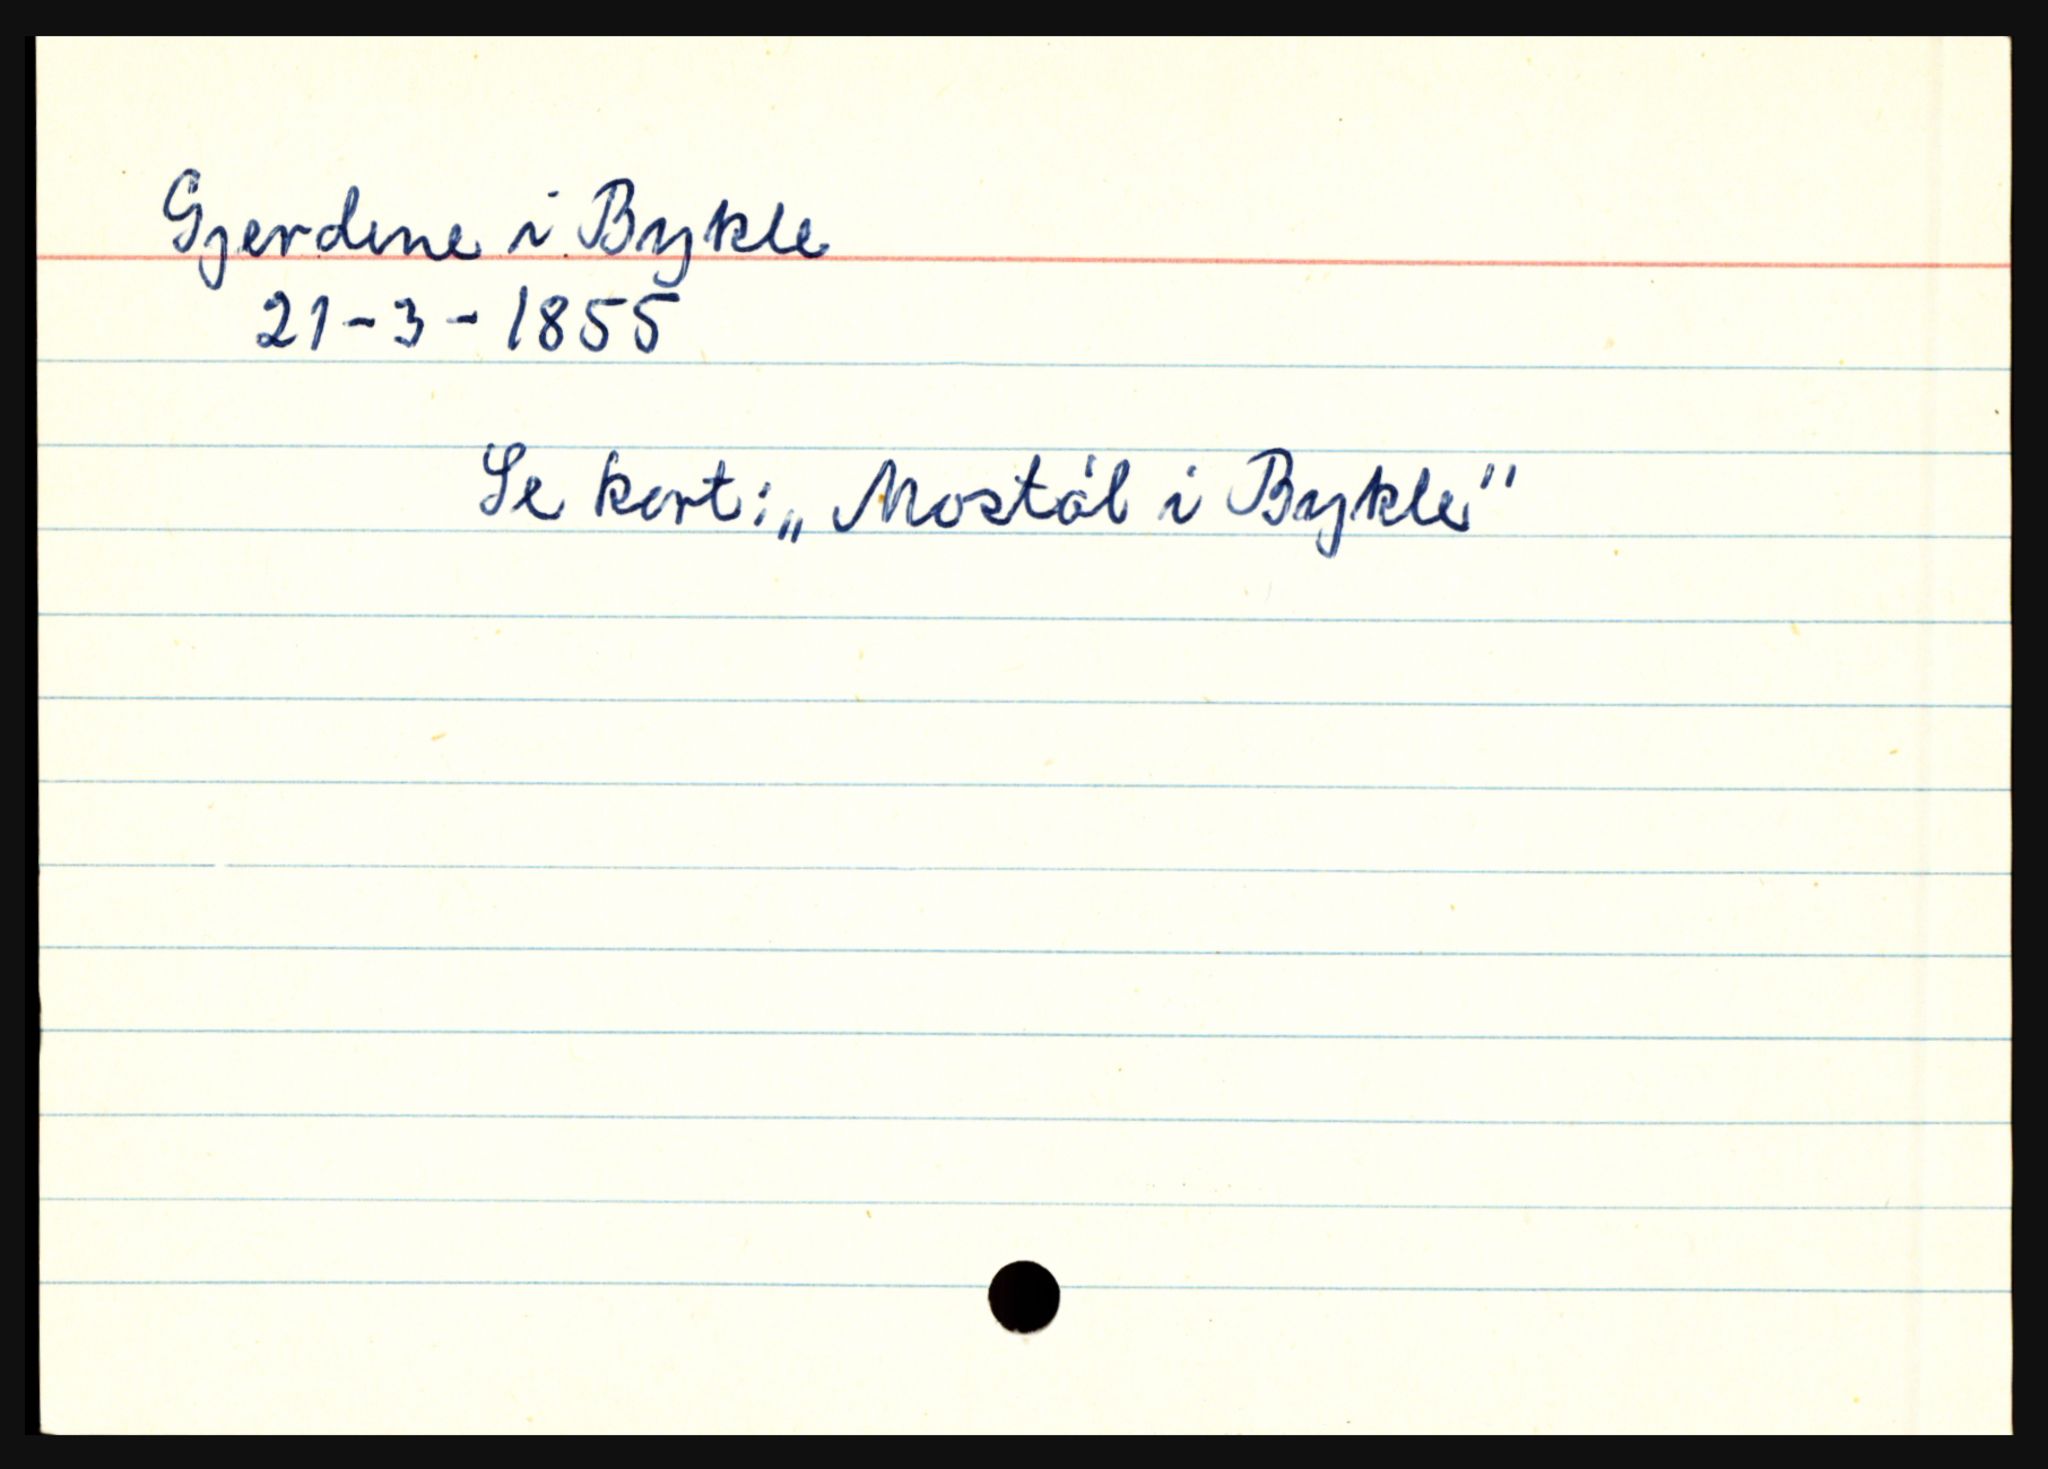 Gjerdene i Bykle
21-3-1855
Se kort: „Mostøl i Bykle"